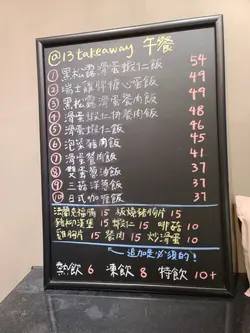 @13takeaway 午餐
① 黑松露滑蛋蝦仁飯 54
② 瑞士雞髀糖心蛋飯 49
③ 黑松露滑蛋餐肉飯 49
④ 滑蛋蝦仁餐肉飯 48
⑤ 滑蛋蝦仁飯 46
⑥ 泡菜豬肉飯 45
⑦ 滑蛋餐肉飯 41
⑧ 雙蛋蔥油飯 37
⑨ 三菇滑蔥飯 37
⑩ 日式咖喱飯 37
法蘭克福腸 15 板燒豬扒 15
15 蝦仁 15 10
雞胸片 15 餐肉 15 炒滑蛋 10
追加是必須的!
熱飲 6 凍飲 8 特飲 10+